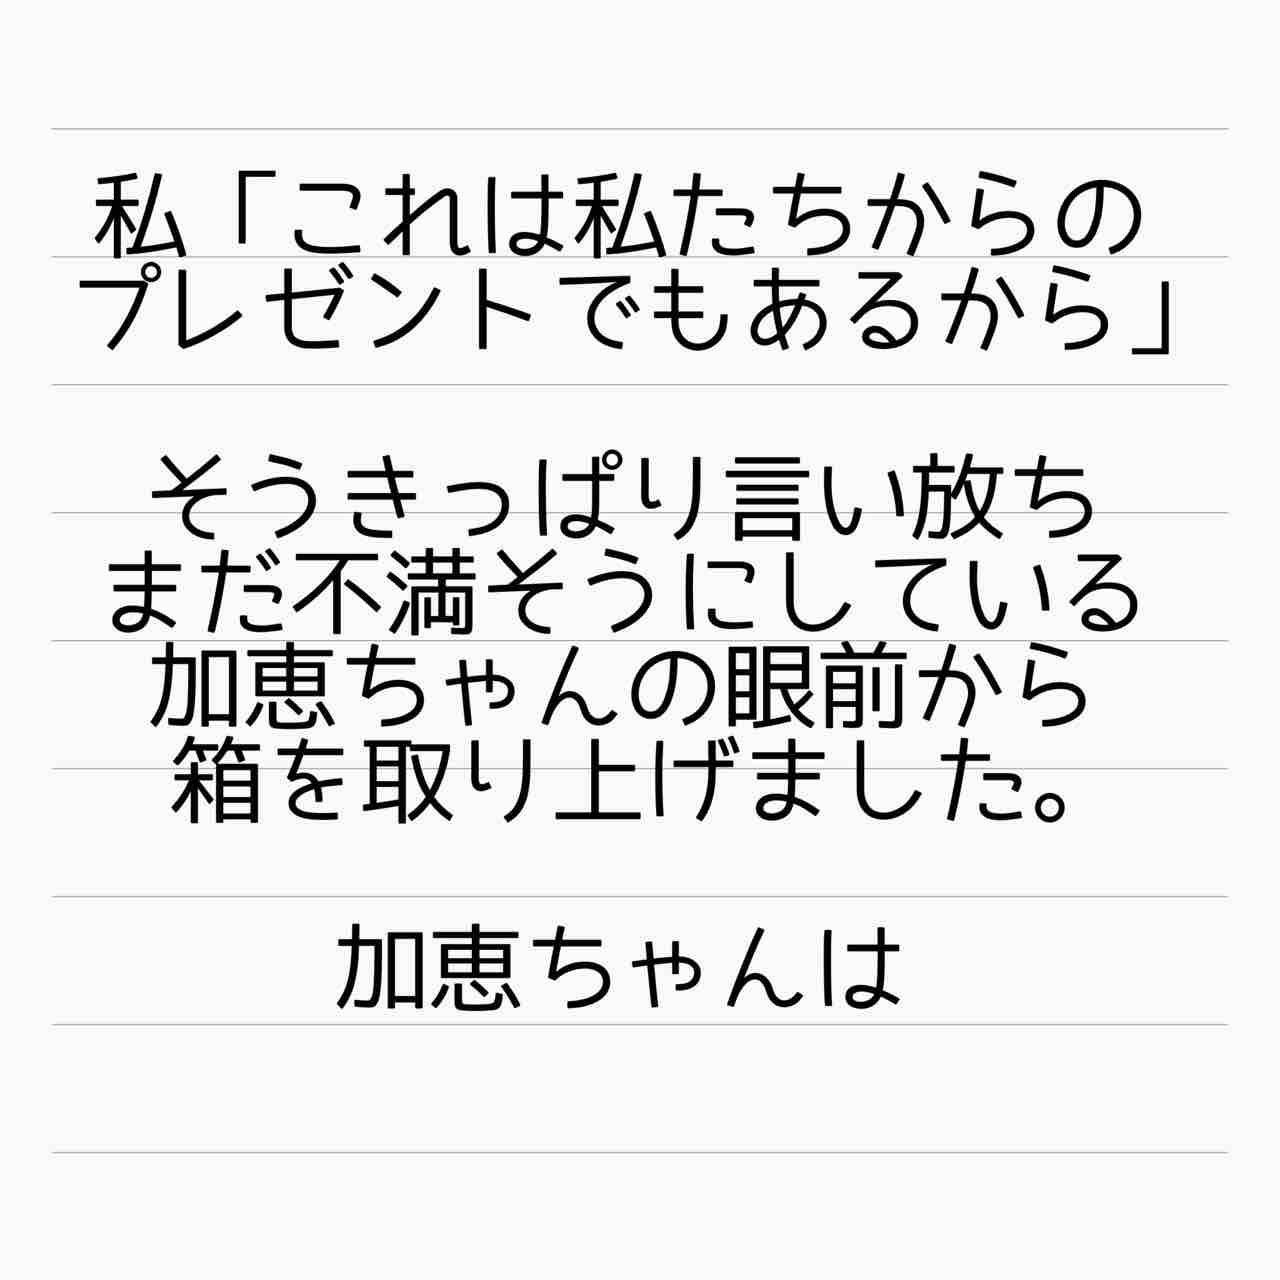 私「これは私たちからの
プレゼントでもあるから」
そうきっぱり言い放ち
まだ不満そうにしている
加恵ちゃんの眼前から
箱を取り上げました。
加恵ちゃんは